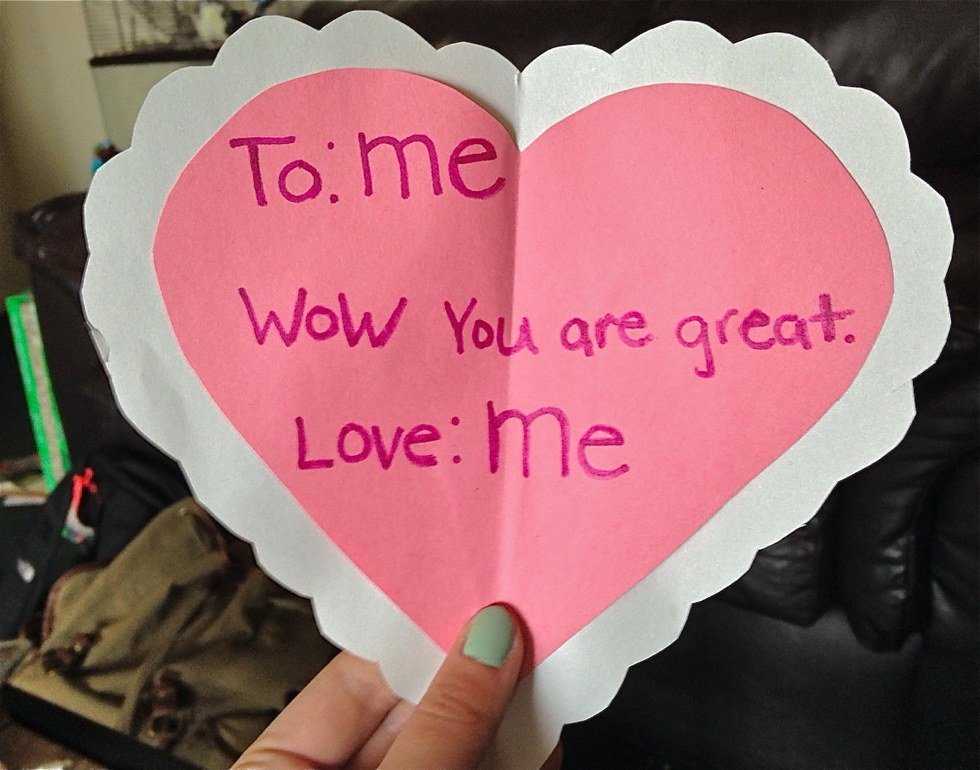 To: me
Wow You are great.
Love: Me